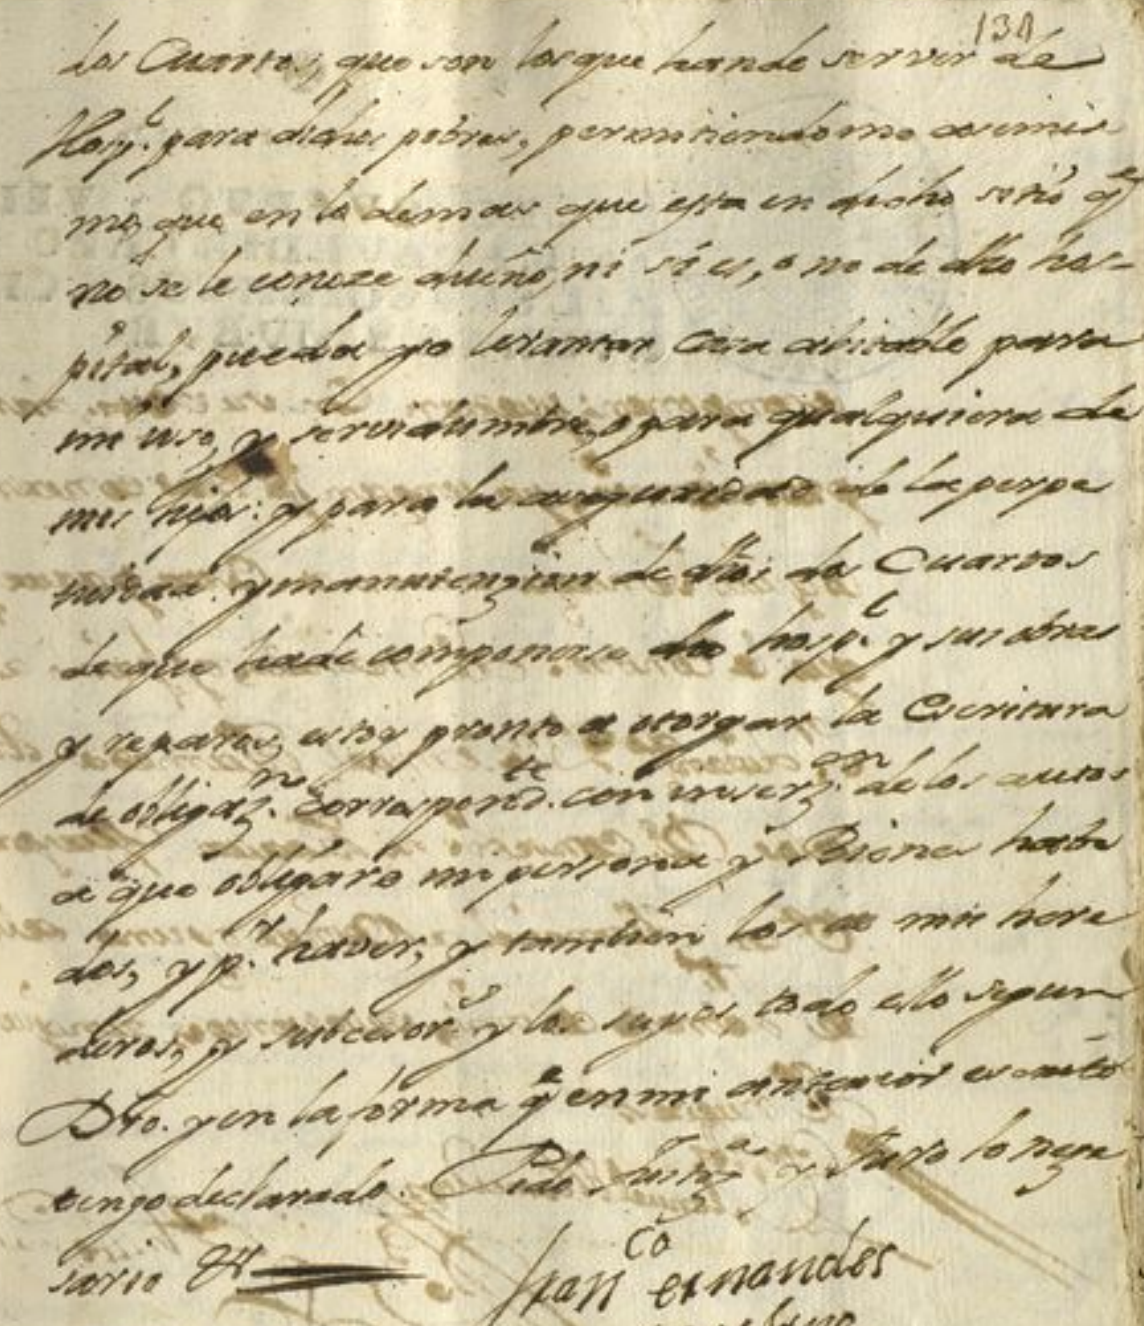 131
dos Cuartos, que son los que han de servir de
Hosp.l para dichos pobres, permitiendome asimis
mo, que en lo demas que esta en dicho sitio q.e
no se le conoze dueño, ni si es, o no de dho hos-
pital, pueda yo levantar Casa abitable para
mi uso, y servidumbre, o para qualquiera de
mis hijos: y para la seguridad de la perpe
tuidad y manutenzion de dhos dos Cuartos
de que ha de componerse dho hosp.l y sus obras
y reparos, estoy pronto a otorgar la Escritura
de obligaz.n correspond.te con inserz.on de los autos
a que obligare mi persona y Bienes habi
dos, y p.r haver, y tambien los de mis here
deros, y subcesor.s y los suyos todo ello segun
Dro. y en la forma q.e en mi anterior escrito
tengo declarado. Pido Justiz.a y Juro lo neze
sario &.a
Fran.co Fernandes